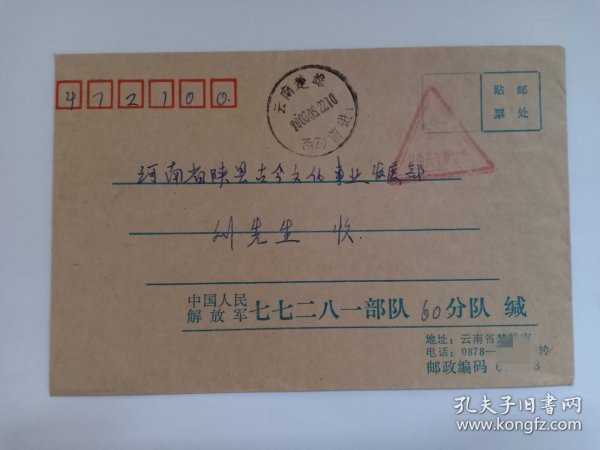 472100
云南楚雄
2003.05.22.10
贴邮
票处
河南省陕县古今文化事业发展部
刘先生 收
中国人民
解放军 七七二八一部队 60分队 缄
地址：云南省楚雄市
电话：0878— 转
邮政编码 6 8
孔夫子旧书网
www.kongfz.com